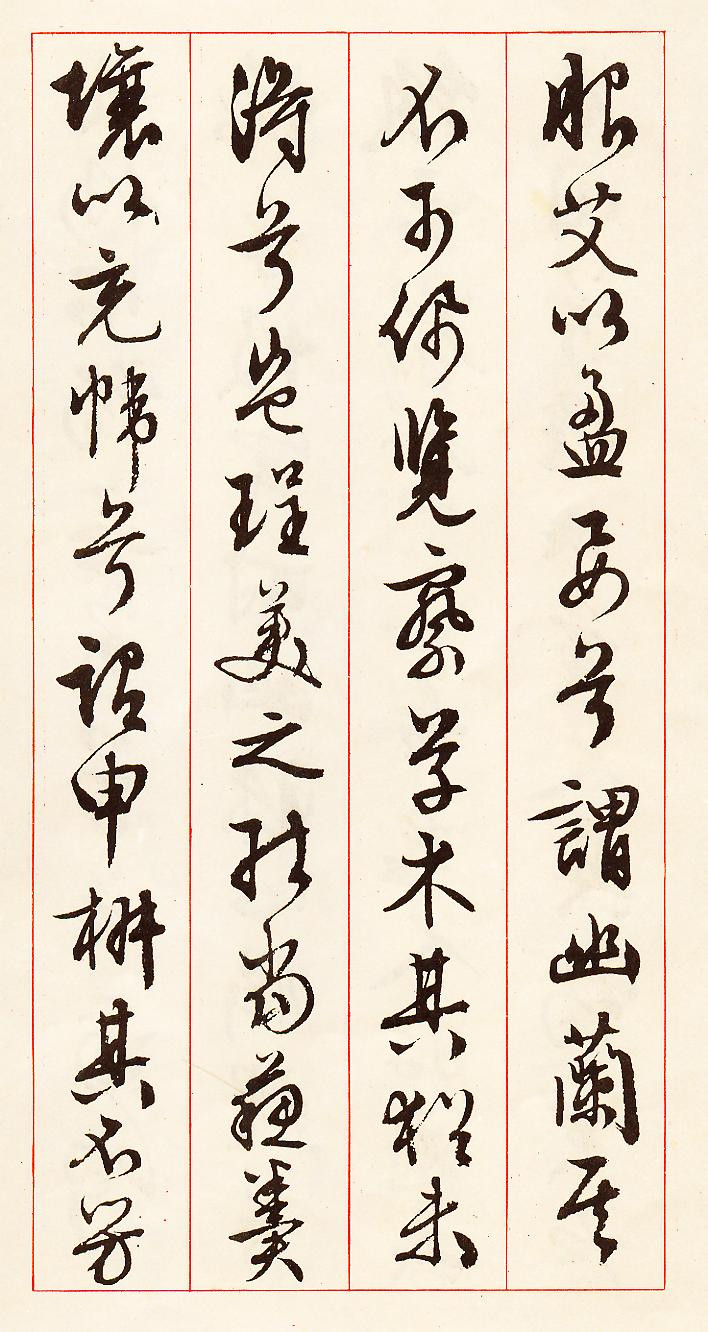 服艾以盈要兮謂幽蘭其
不可佩覽察草木其猶未
得兮豈珵美之能當蘇糞
壤以充幃兮謂申椒其不芳